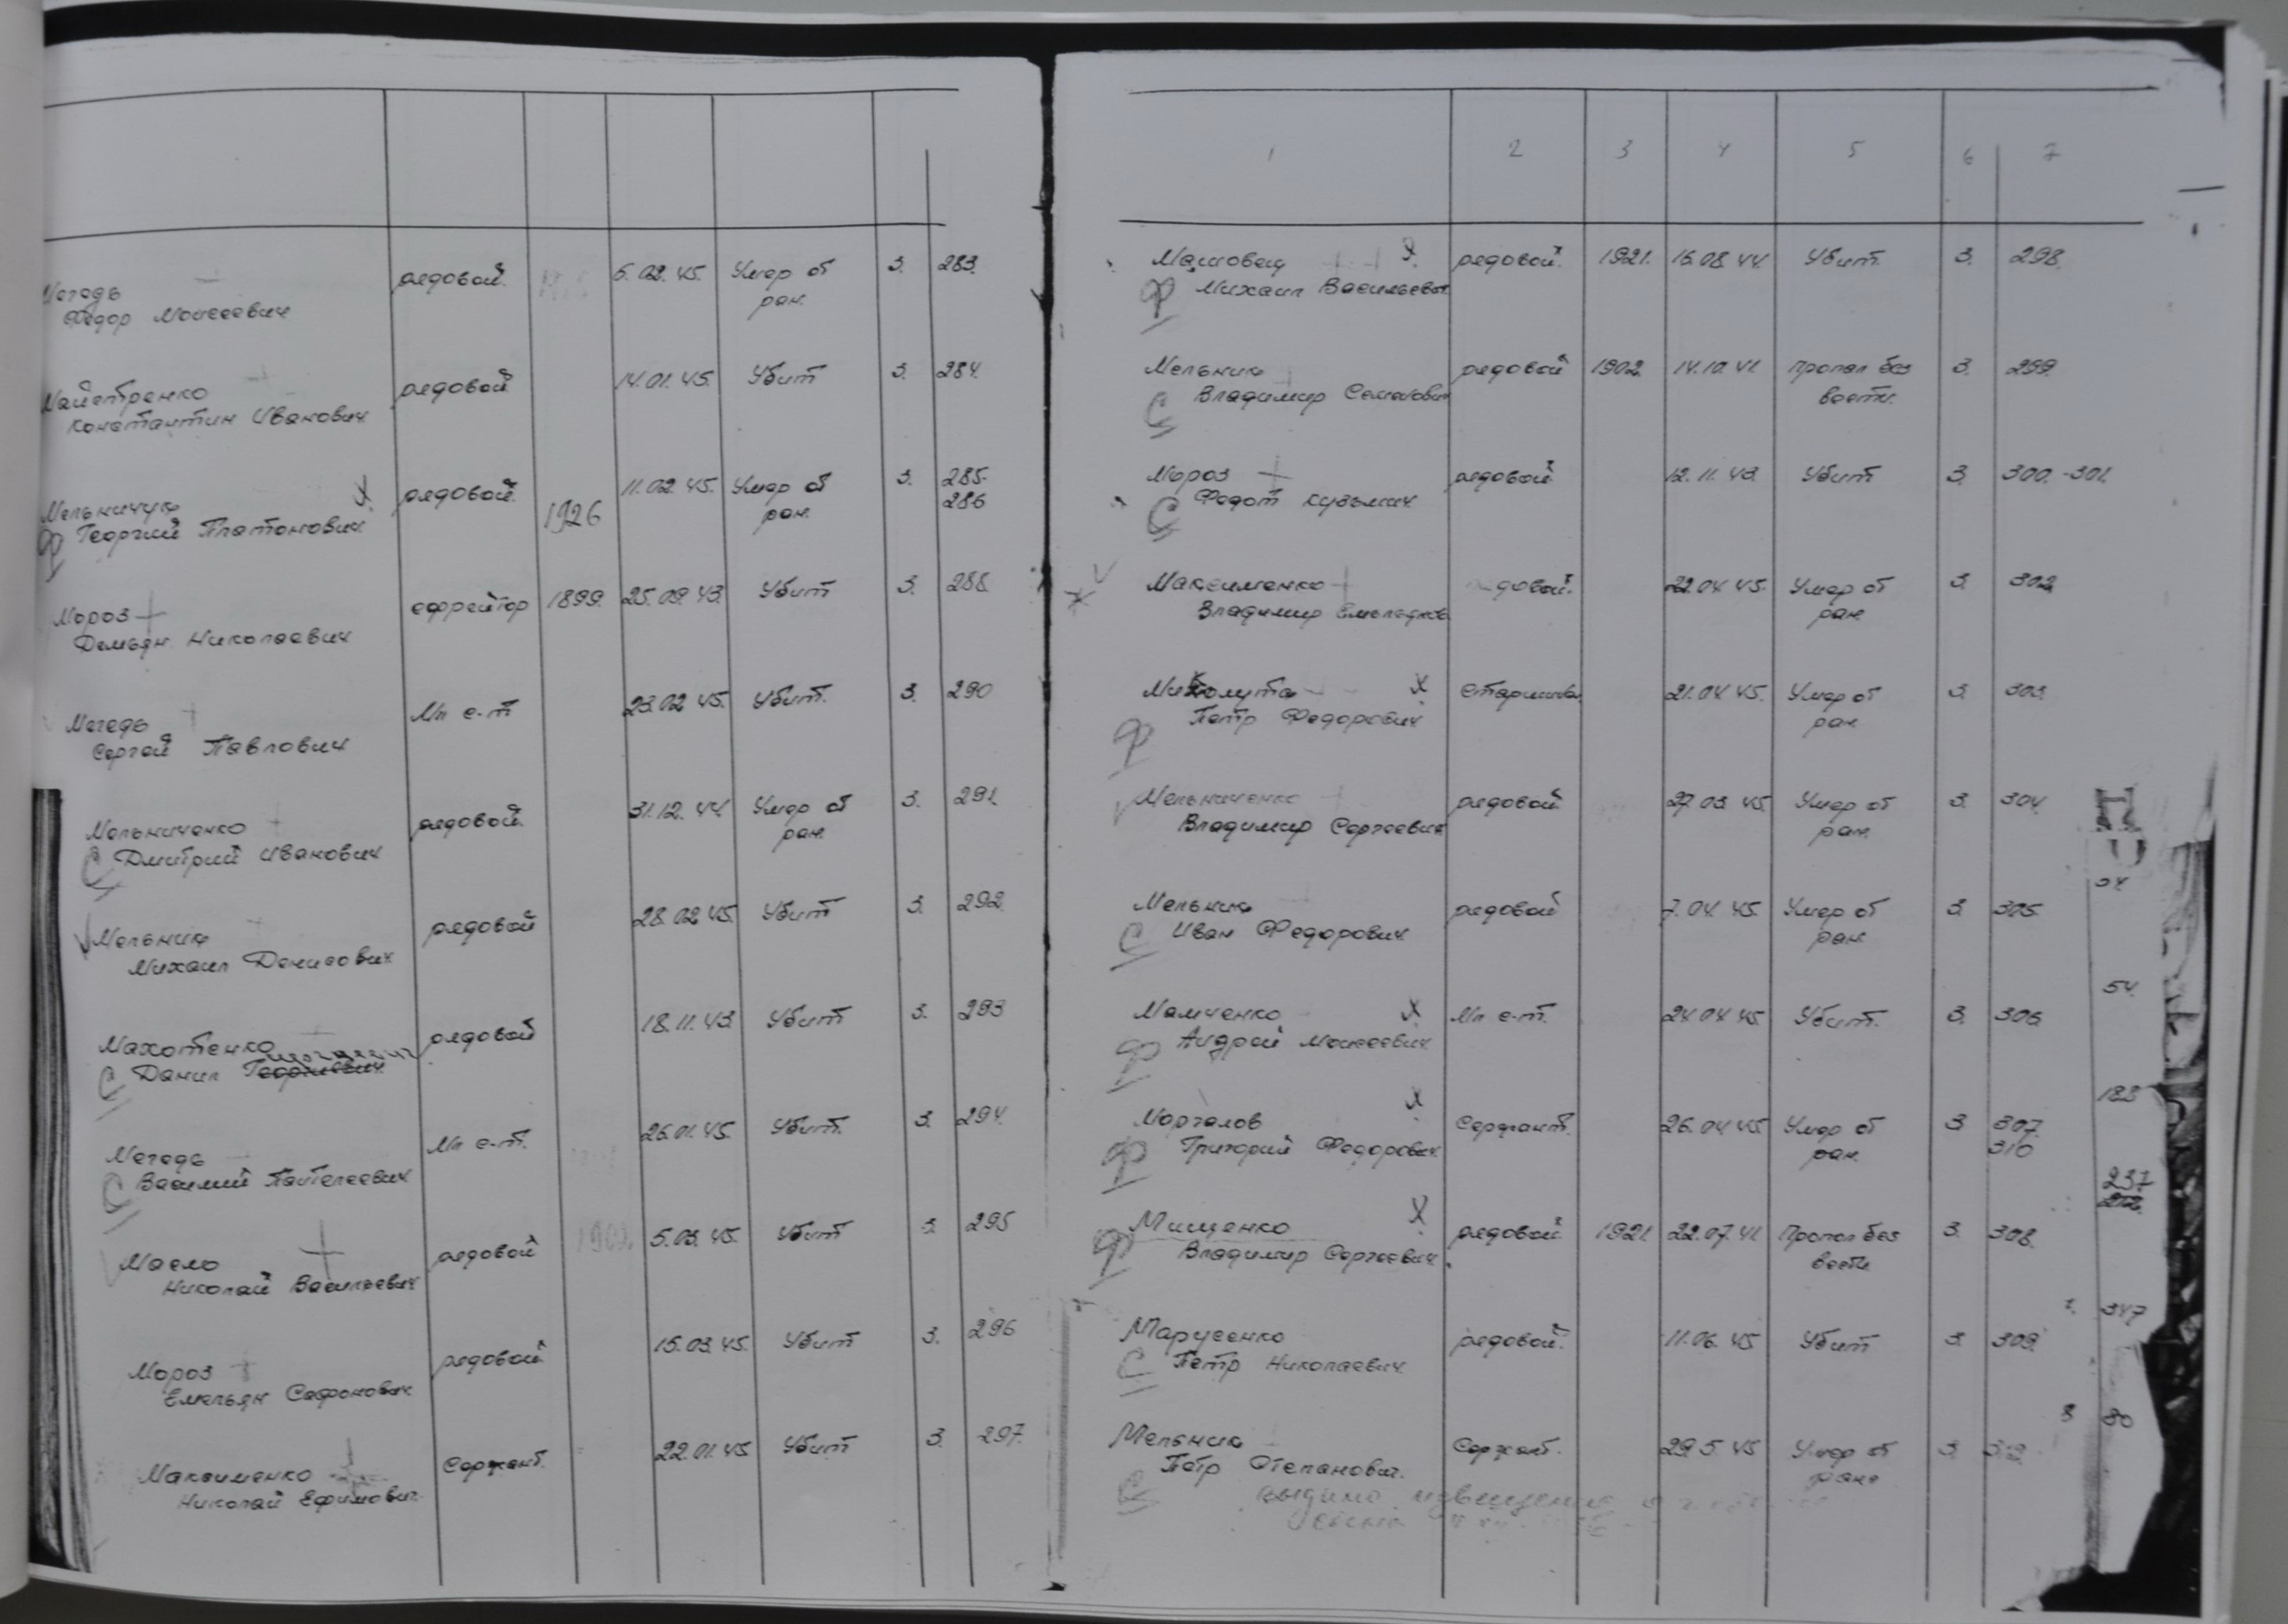 Мегедь рядовой. 5.02.45. Умер от 3. 283.
Федор Моисеевич ран.
Майстренко рядовой 14.01.45. Убит 3. 284.
Константин Иванович
Мельничук рядовой. 1926 11.02.45. Умер от 3. 285-
Ф Георгий Платонович ран. 286
Мороз ефрейтор 1899. 25.09.43. Убит 3. 288.
Демьян Николаевич
Мегедь Мл с-т 23.02.45. Убит. 3. 290
Сергей Павлович
Мельниченко рядовой. 31.12.44. Умер от 3. 291.
С Дмитрий Иванович ран.
Мельник рядовой 28.02.45. Убит 3. 292.
Михаил Денисович
Махотенко рядовой 18.11.43. Убит 3. 293
С Данил Георгиевич
Мегедь Мл с-т. 26.01.45. Убит. 3. 294.
С Василий Пантелеевич
Масло рядовой 5.03.45. Убит 3. 295
Николай Васильевич
Мороз рядовой 15.03.45. Убит 3. 296
Емельян Сафонович
Максименко Сержант. 22.01.45 Убит 3. 297.
Николай Ефимович
1 2 3 4 5 6 7
рядовой. 1921. 16.08.44. Убит. 3. 298.
Ф Михаил Васильевич
Мельник рядовой 1902. 14.10.41. Пропал без 3. 299.
С Владимир Семенович вести.
Мороз рядовой 12.11.43. Убит 3. 300.-301.
С Федот Кузьмич
Максименко рядовой. 22.04.45. Умер от 3. 302.
Владимир ран.
старшина 21.04.45. Умер от 3. 303.
Ф Петр Федорович ран.
Мельниченко рядовой 27.03.45. Умер от 3. 304.
Владимир Сергеевич ран.
Мельник рядовой 7.04.45. Умер от 3. 305.
С Иван Федорович ран.
54.
Мамченко Мл с-т. 24.04.45. Убит. 3. 306.
Ф Андрей Моисеевич
188
Моргалов Сержант. 26.04.45 Умер от 3 307.
Ф Григорий Федорович ран. 310
237
Мищенко рядовой. 1921. 22.07.41. Пропал без 3. 308.
Ф Владимир Сергеевич. вести
347
Марусенко рядовой. 11.06.45 Убит 3. 309.
С Петр Николаевич
80
Мельник Сержант. 29.5.45 Умер от 3.
Петр Степанович. ран
С